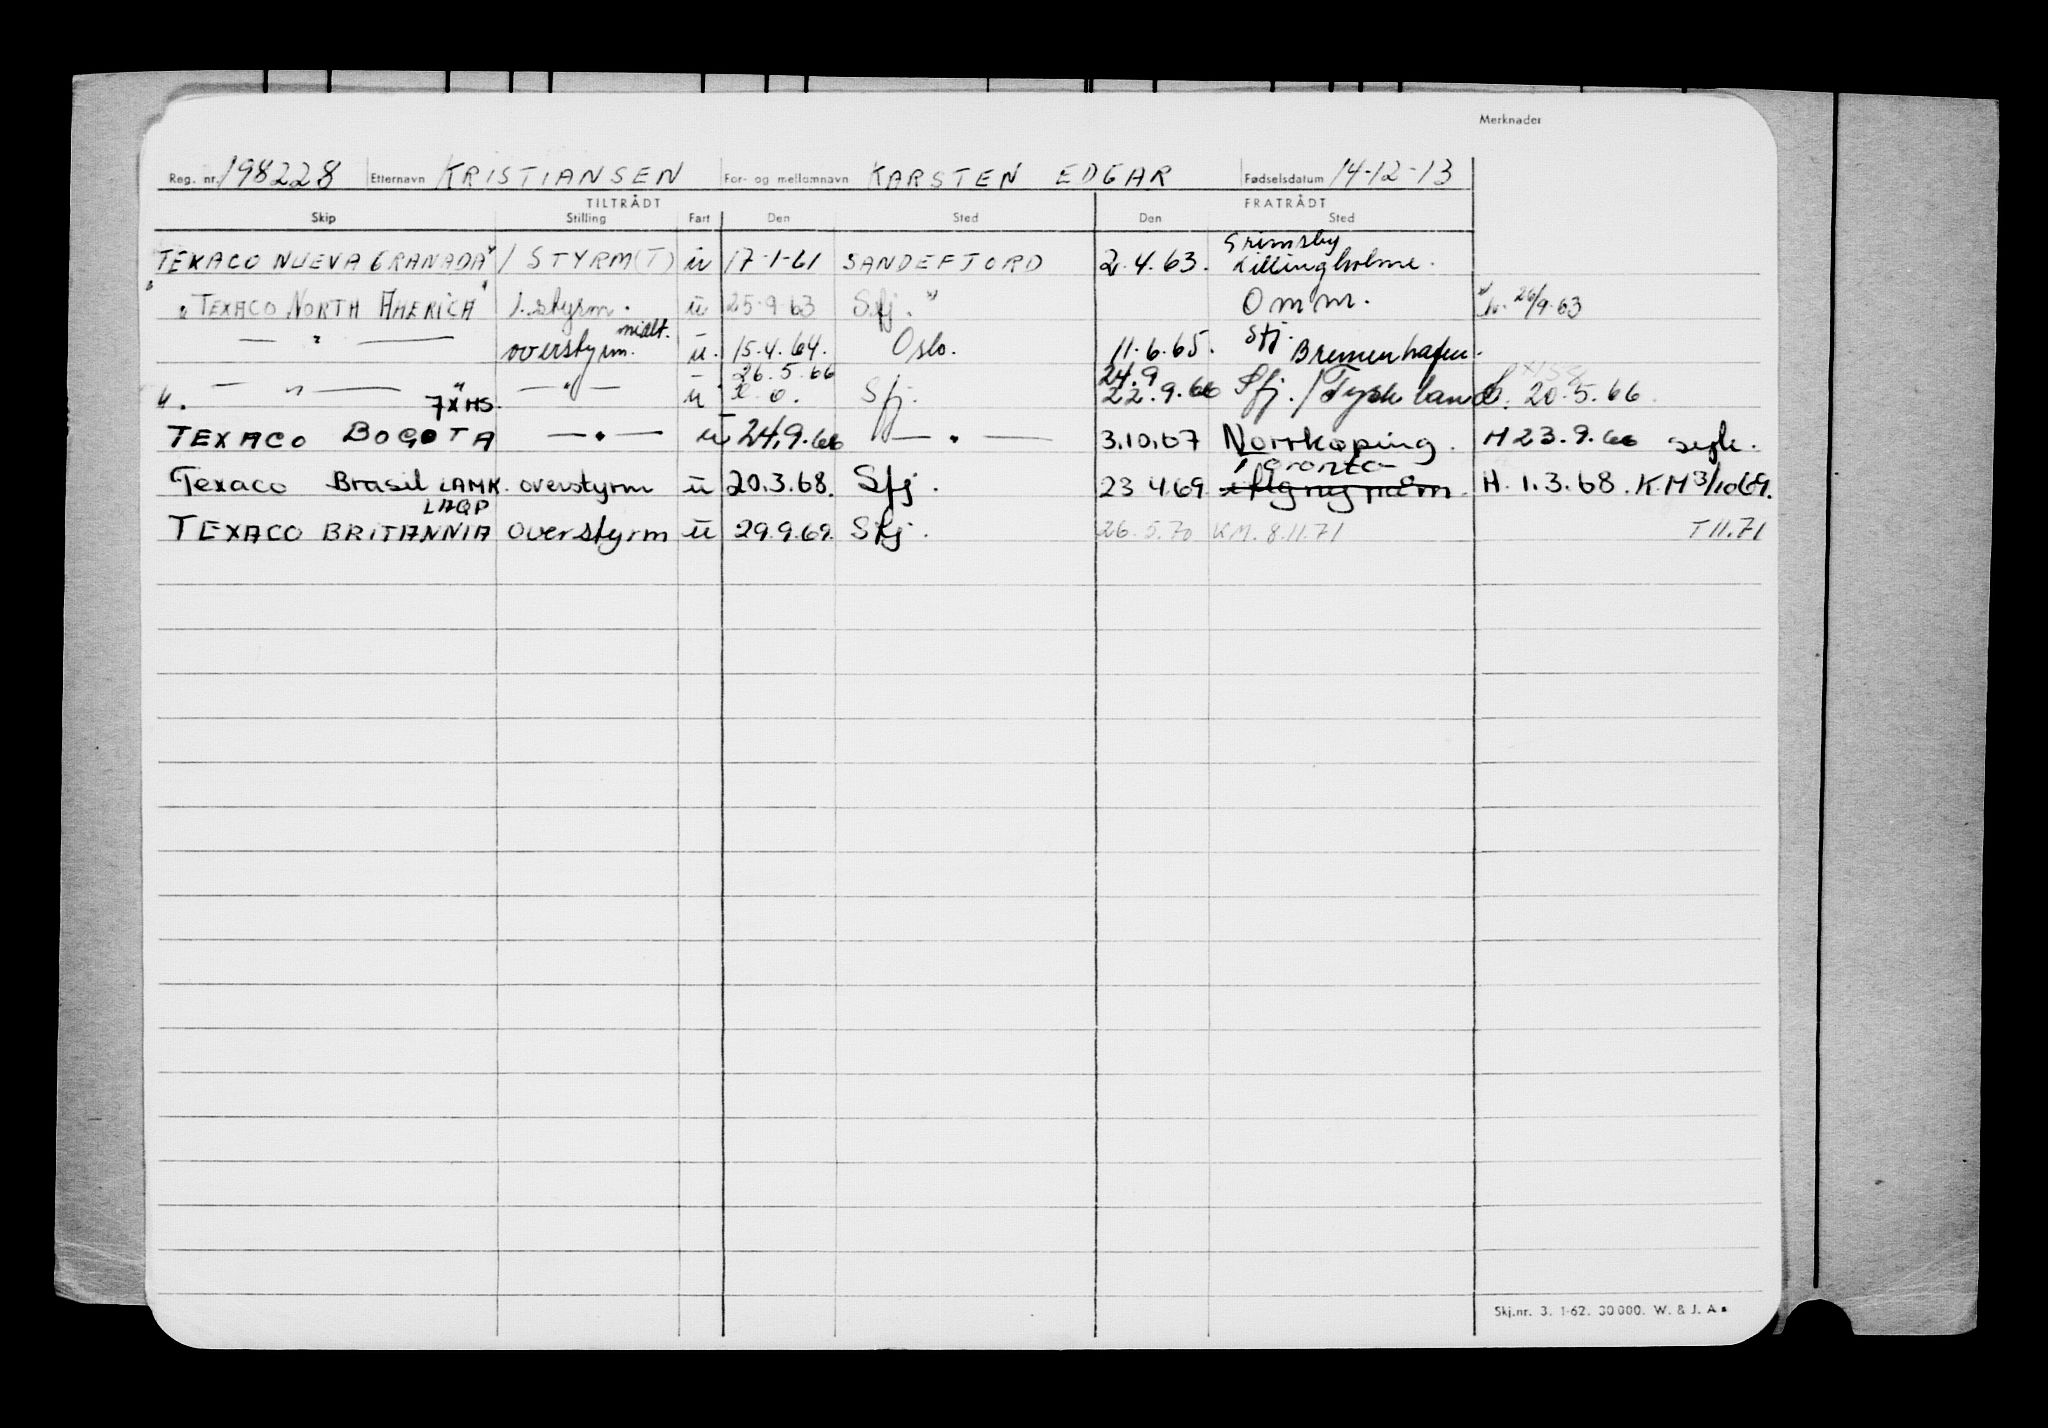 Merknader
Reg. nr. 198228 Etternavn KRISTIANSEN For- og mellomnavn KARSTEN EDGAR Fødselsdatum 14-12-13
TILTRÅDT FRATRÅDT
Skip Stilling Fart Den Sted Den Sted
Grimsby
"TEXACO NUEVA GRANADA" 1 STYRM(T) ū 17-1-61 SANDEFJORD 2.4.63. Killingholme.
"TEXACO NORTH AMERICA" 1. styrm. ū 25.9.63 Sfj. " Omm. 26/9.63
— " — overstyrm. midlt. ū. 15.4.64. Oslo. 11.6.65. Sfj. Bremenhafen.
26.5.66 24.9
— " — — " — ū Sfj. 22.9.66 Sfj. / Tyskland 20.5.66.
7XHS.
TEXACO BOGOTA — " — ū 24.9.66 — " — 3.10.67 Norrkøping. H 23.9.66
Toronto
Texaco Brasil LAMK. overstyrm ū 20.3.68. Sfj. 23.4.69 H. 1.3.68. KM 3/10 69.
LAQP
TEXACO BRITANNIA overstyrm ū 29.9.69. Sfj. 26.5.70 KM. 8.11.71 T 11.71
Skj.nr. 3. 1-62. 30 000. W. & J. A.s